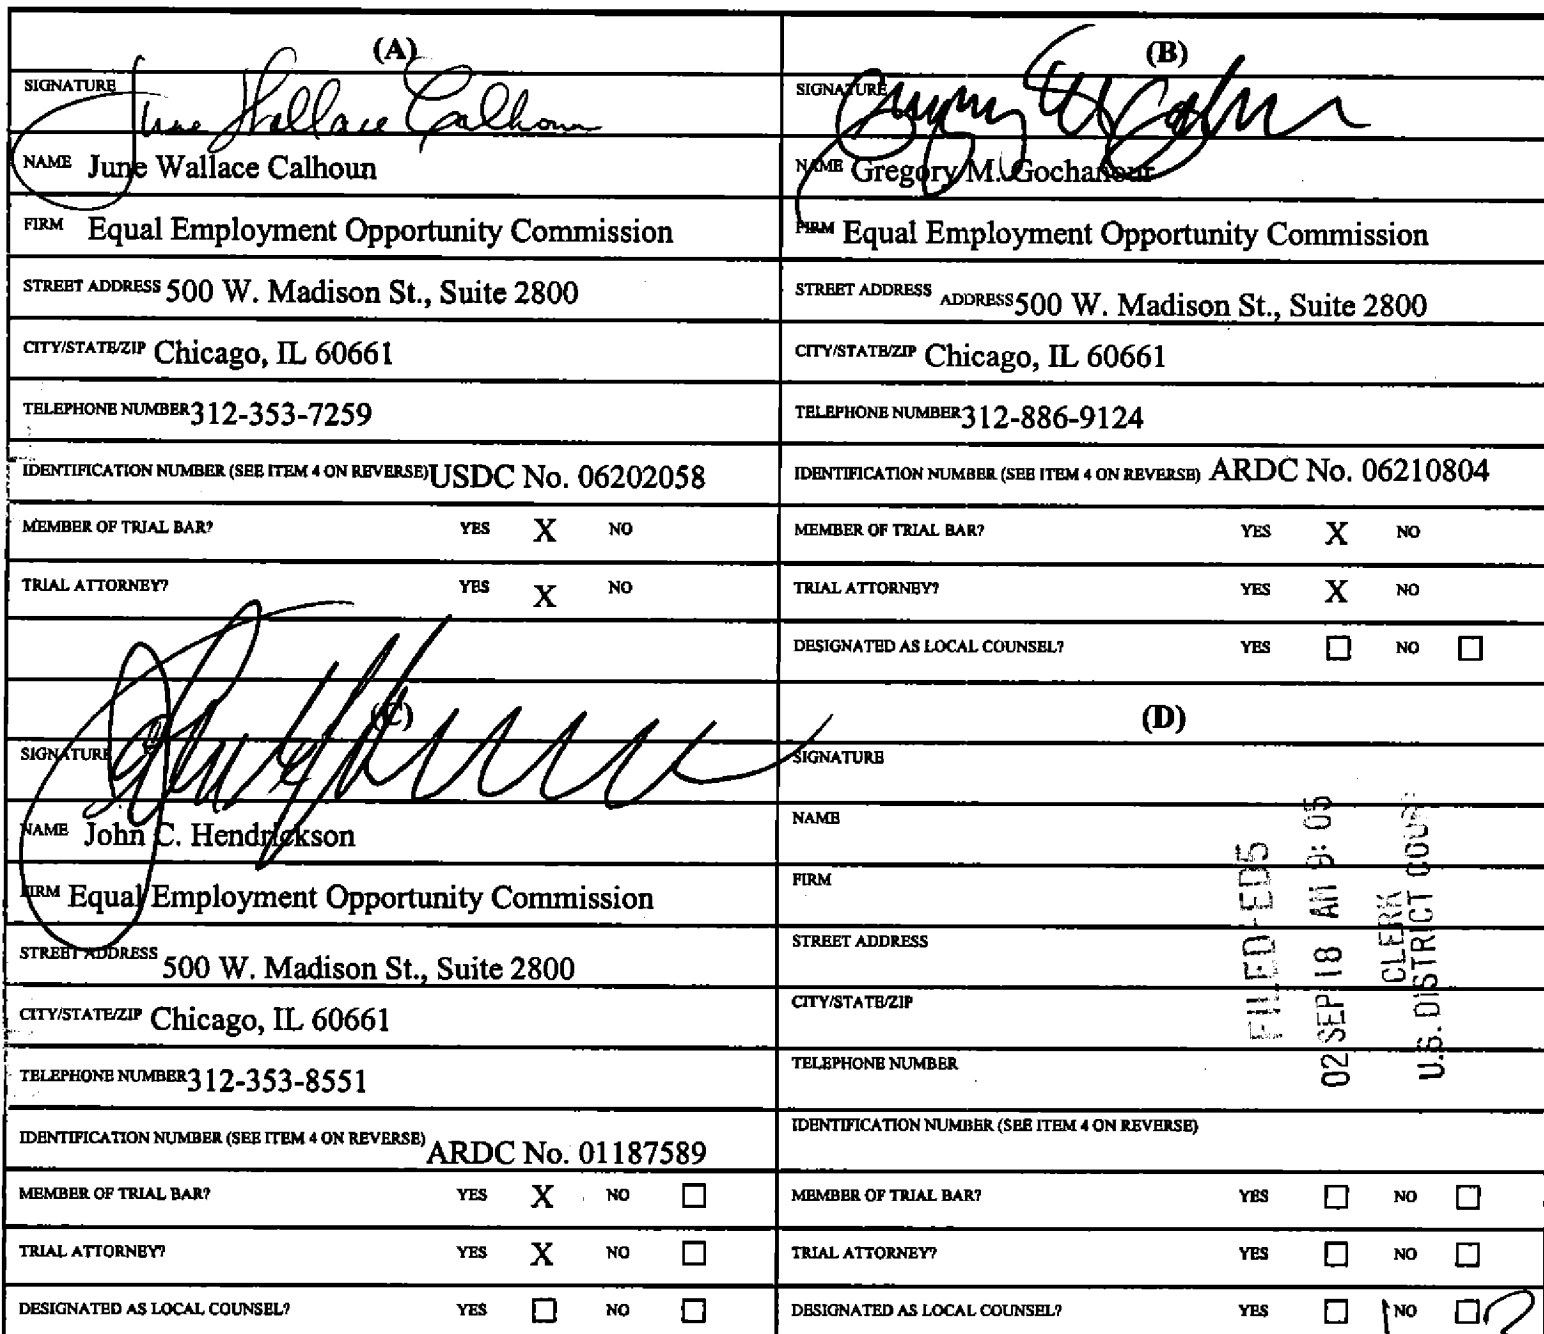 (A)
SIGNATURE June Wallace Calhoun
NAME June Wallace Calhoun
FIRM Equal Employment Opportunity Commission
STREET ADDRESS 500 W. Madison St., Suite 2800
CITY/STATE/ZIP Chicago, IL 60661
TELEPHONE NUMBER 312-353-7259
IDENTIFICATION NUMBER (SEE ITEM 4 ON REVERSE) USDC No. 06202058
MEMBER OF TRIAL BAR? YES X NO
TRIAL ATTORNEY? YES X NO
(B)
SIGNATURE
NAME Gregory M. Gochanour
FIRM Equal Employment Opportunity Commission
STREET ADDRESS ADDRESS 500 W. Madison St., Suite 2800
CITY/STATE/ZIP Chicago, IL 60661
TELEPHONE NUMBER 312-886-9124
IDENTIFICATION NUMBER (SEE ITEM 4 ON REVERSE) ARDC No. 06210804
MEMBER OF TRIAL BAR? YES X NO
TRIAL ATTORNEY? YES X NO
DESIGNATED AS LOCAL COUNSEL? YES ☐ NO ☐
(C)
SIGNATURE
NAME John C. Hendrickson
FIRM Equal Employment Opportunity Commission
STREET ADDRESS 500 W. Madison St., Suite 2800
CITY/STATE/ZIP Chicago, IL 60661
TELEPHONE NUMBER 312-353-8551
IDENTIFICATION NUMBER (SEE ITEM 4 ON REVERSE) ARDC No. 01187589
MEMBER OF TRIAL BAR? YES X NO ☐
TRIAL ATTORNEY? YES X NO ☐
DESIGNATED AS LOCAL COUNSEL? YES ☐ NO ☐
(D)
SIGNATURE
NAME
FIRM
STREET ADDRESS
CITY/STATE/ZIP
TELEPHONE NUMBER
IDENTIFICATION NUMBER (SEE ITEM 4 ON REVERSE)
MEMBER OF TRIAL BAR? YES ☐ NO ☐
TRIAL ATTORNEY? YES ☐ NO ☐
DESIGNATED AS LOCAL COUNSEL? YES ☐ NO ☐
FILED-ED5
02 SEP 18 AM 9:05
CLERK
U.S. DISTRICT COURT